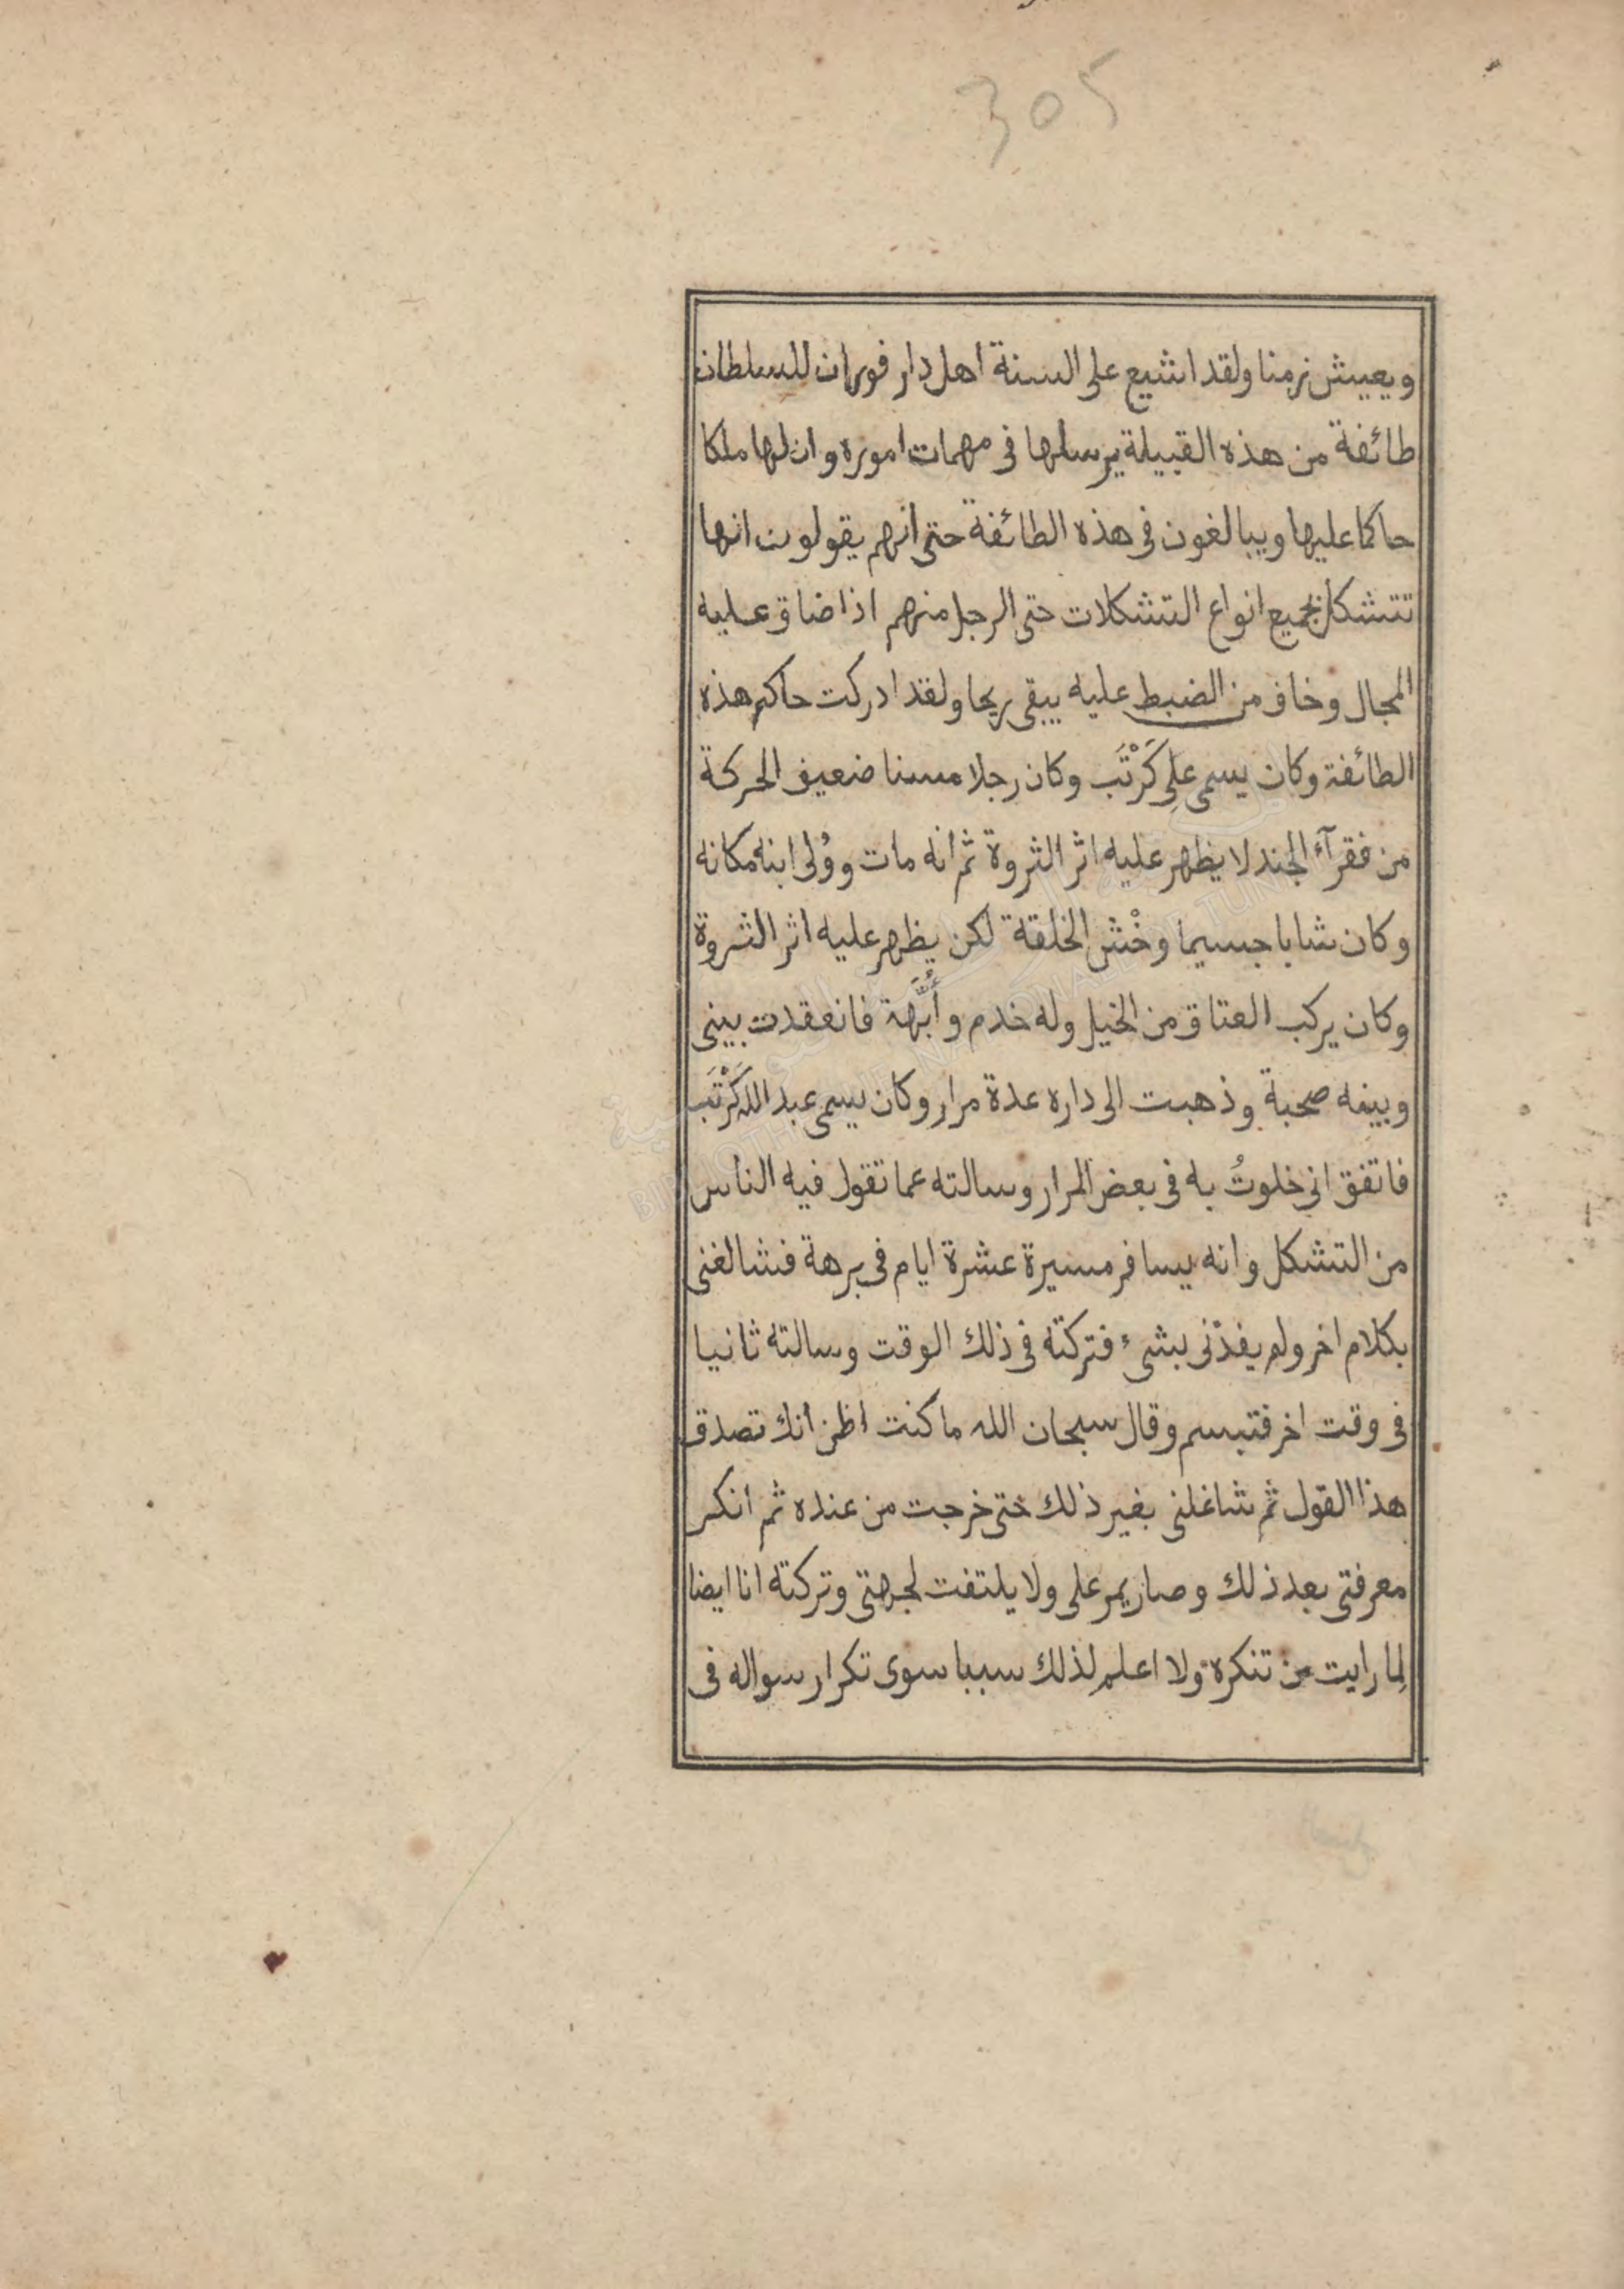 305
ويعيش زمنا ولقد اشيع على السنة اهل دار فور ان للسلطان
طائفة من هذه القبيلة يرسلها فى مهمات اموره وان لها ملكا
حاكما عليها ويبالغون فى هذه الطائفة حتى انهم يقولون انها
تتشكل بجميع انواع التشكلات حتى الرجل منهم اذا ضاق عليه
المجال وخاف من الضبط عليه يبقى ريحا ولقد ادركت حاكم هذه
الطائفة وكان يسمى علِى كَرْتَب وكان رجلا مسنا ضعيف الحركة
من فقرآء الجند لا يظهر عليه اثر الثروة ثم انه مات ووُلى ابنه مكانه
وكان شابا جسيما وخْش الخلقة لكن يظهر عليه اثر الثروة
وكان يركب العتاق من الخيل وله خدم وأُبَّهة فانعقدت بينى
وبينه صحبة وذهبت الى داره عدة مرار وكان يسمى عبد الله كَرْتَب
فاتفق انى خلوتُ به فى بعض المرار وسالته عما تقول فيه الناس
من التشكل وانه يسافر مسيرة عشرة ايام فى برهة فشالغنى
بكلام اخر ولم يفدنى بشىء فتركته فى ذلك الوقت وسالته ثانيا
فى وقت اخر فتبسم وقال سبحان الله ما كنت اظن انك تصدق
هذا القول ثم شاغلنى بغير ذلك حتى خرجت من عنده ثم انكر
معرفتى بعد ذلك وصار يمر على ولا يلتفت لجهتى وتركته انا ايضا
لِما رايت من تنكره ولا اعلم لذلك سببا سوى تكرار سواله فى